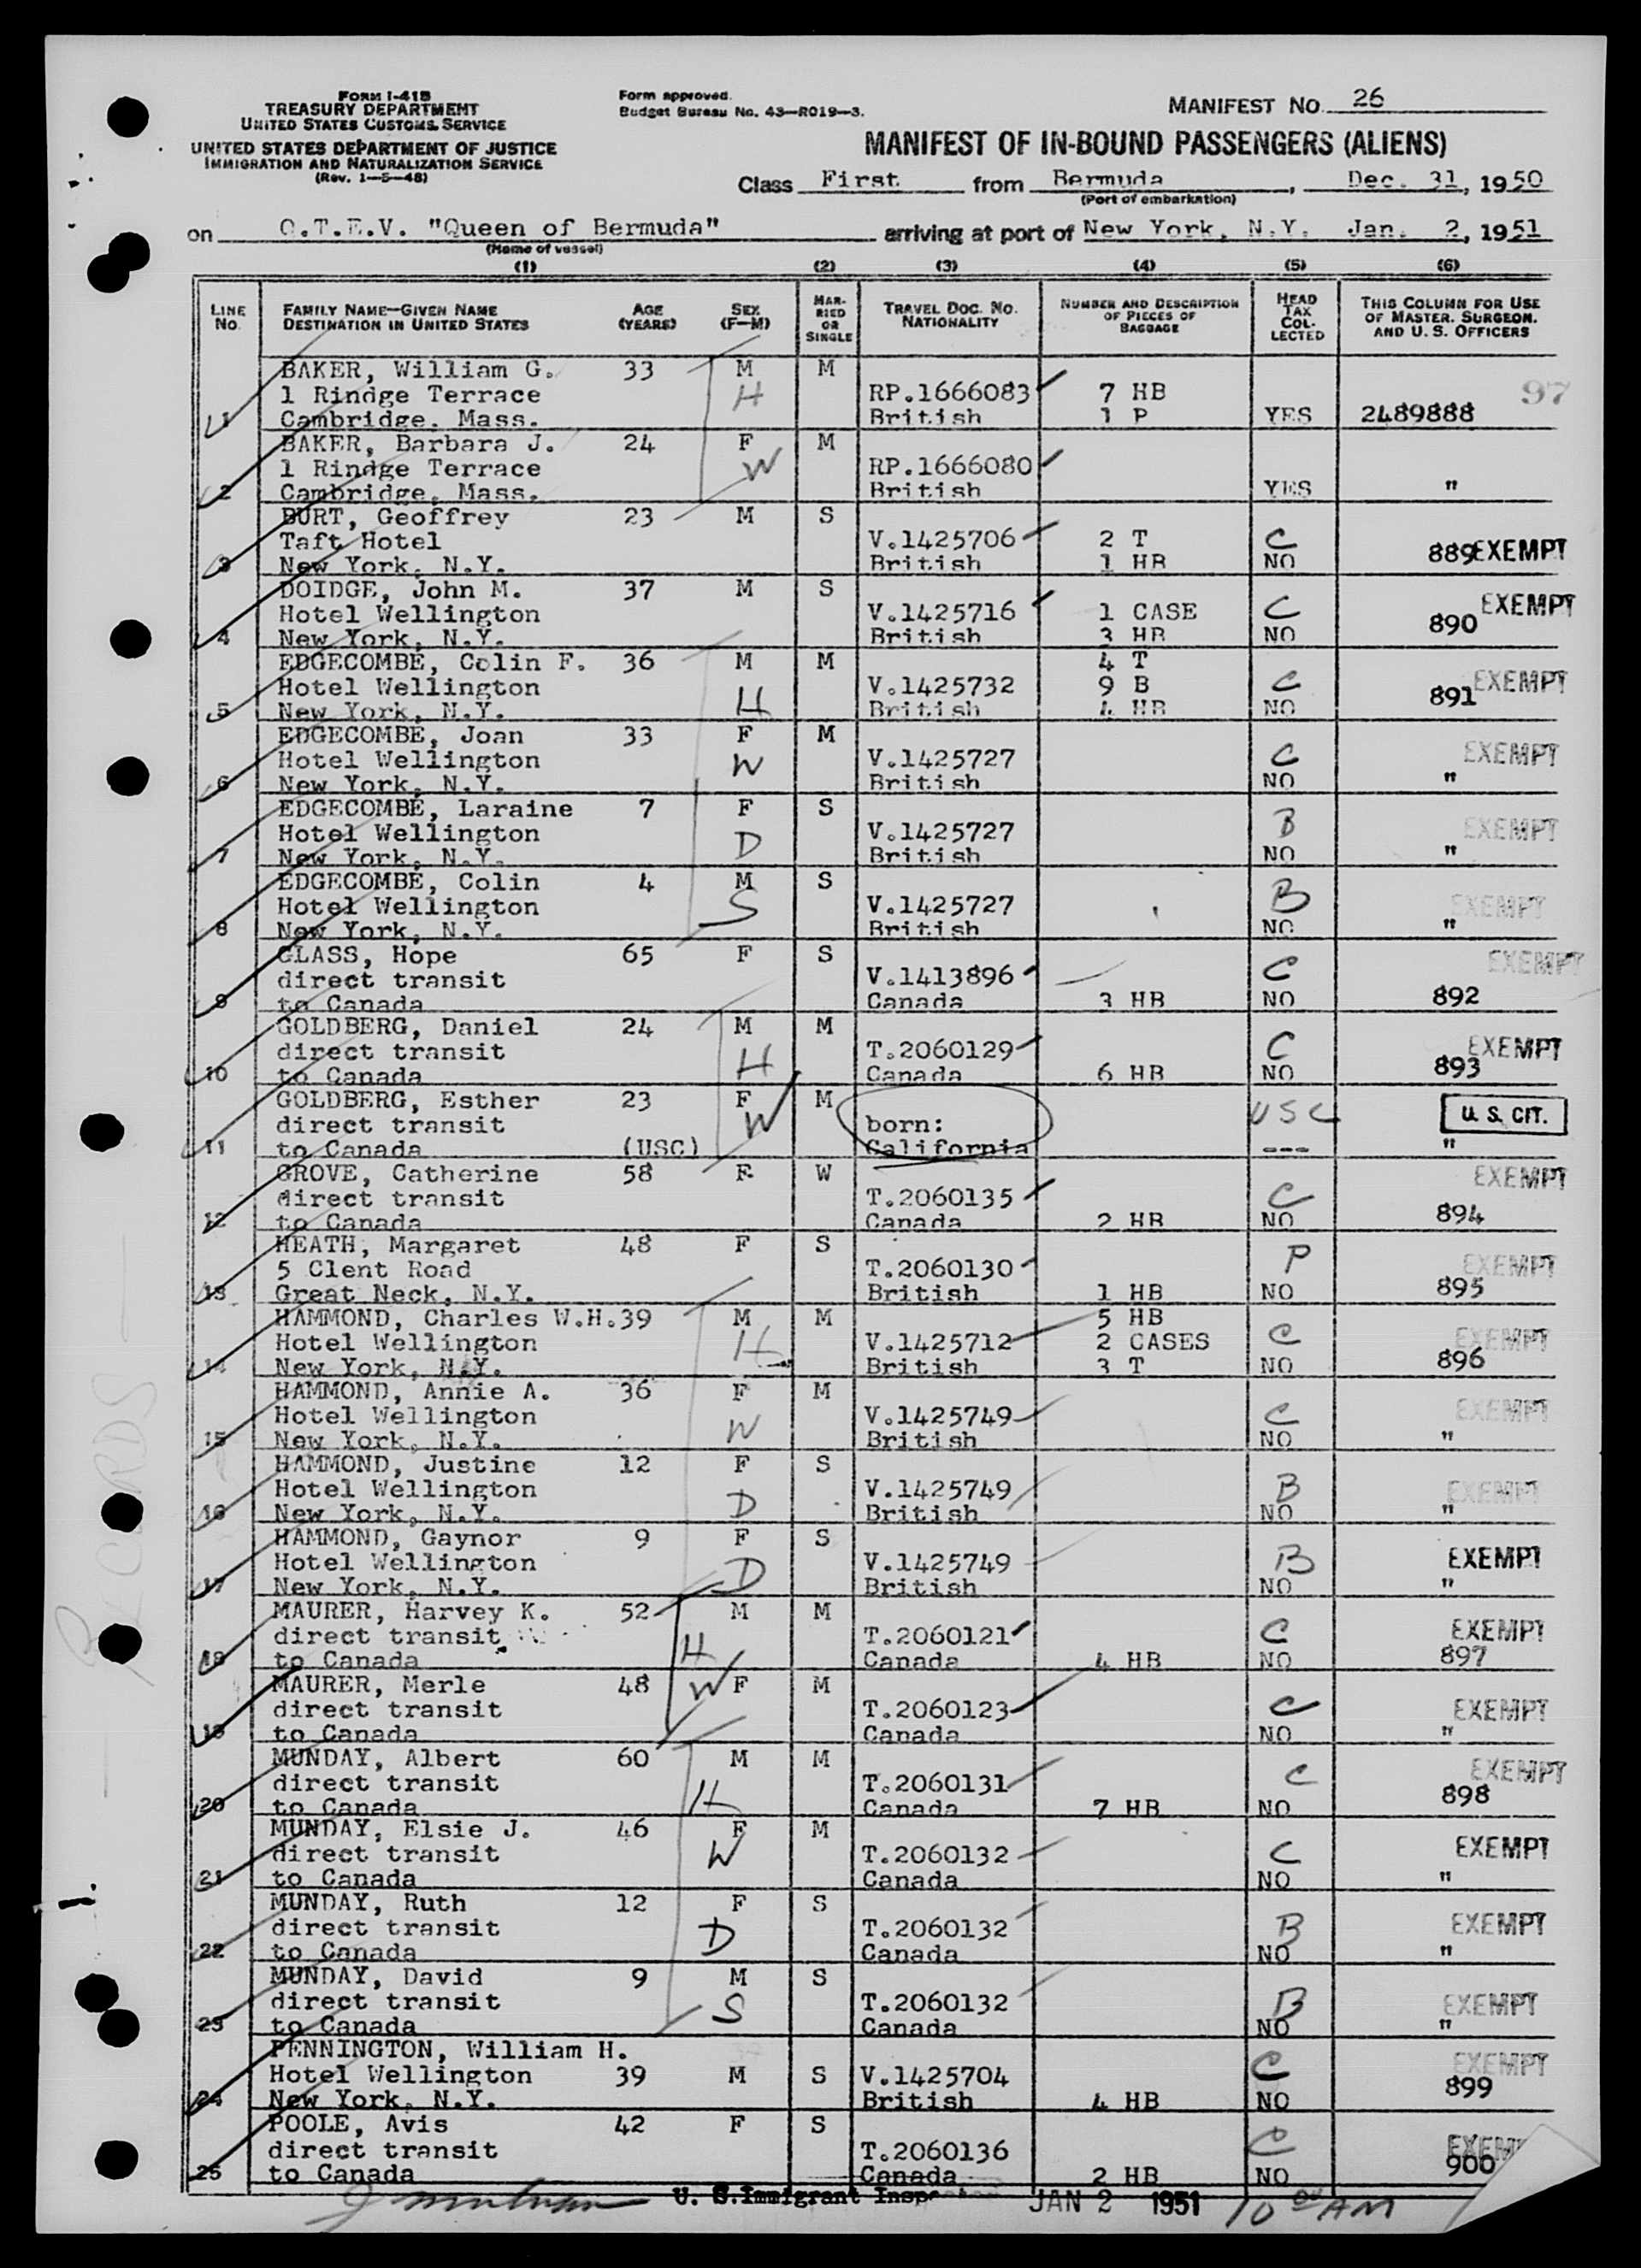 FORM I-418
TREASURY DEPARTMENT
UNITED STATES CUSTOMS SERVICE
UNITED STATES DEPARTMENT OF JUSTICE
IMMIGRATION AND NATURALIZATION SERVICE
(Rev. 1-5-48)
Form approved.
Budget Bureau No. 43-R019-3.
MANIFEST NO. 26
MANIFEST OF IN-BOUND PASSENGERS (ALIENS)
Class First from Bermuda, Dec. 31, 1950
(Port of embarkation)
on Q.T.E.V. "Queen of Bermuda" arriving at port of New York, N.Y. Jan. 2, 1951
(Name of vessel)
(1) (2) (3) (4) (5) (6)
LINE No. FAMILY NAME—GIVEN NAME DESTINATION IN UNITED STATES AGE (YEARS) SEX (F—M) MARRIED OR SINGLE TRAVEL DOC. NO. NATIONALITY NUMBER AND DESCRIPTION OF PIECES OF BAGGAGE HEAD TAX COLLECTED THIS COLUMN FOR USE OF MASTER, SURGEON, AND U. S. OFFICERS
BAKER, William G. 33 M M
1 Rindge Terrace H RP.1666083 7 HB 97
1 Cambridge, Mass. British 1 P YES 2489888
BAKER, Barbara J. 24 F M
1 Rindge Terrace W RP.1666080
2 Cambridge, Mass. British YES "
BURT, Geoffrey 23 M S
Taft Hotel V.1425706 2 T C
3 New York, N.Y. British 1 HB NO 889 EXEMPT
DOIDGE, John M. 37 M S
Hotel Wellington V.1425716 1 CASE C EXEMPT
4 New York, N.Y. British 3 HB NO 890
EDGECOMBE, Colin F. 36 M M 4 T
Hotel Wellington H V.1425732 9 B C EXEMPT
5 New York, N.Y. British 4 HB NO 891
EDGECOMBE, Joan 33 F M
Hotel Wellington W V.1425727 C EXEMPT
6 New York, N.Y. British NO "
EDGECOMBE, Laraine 7 F S
Hotel Wellington D V.1425727 B EXEMPT
7 New York, N.Y. British NO "
EDGECOMBE, Colin 4 M S
Hotel Wellington S V.1425727 B EXEMPT
8 New York, N.Y. British NO "
GLASS, Hope 65 F S
direct transit V.1413896 C EXEMPT
9 to Canada Canada 3 HB NO 892
GOLDBERG, Daniel 24 M M
direct transit H T.2060129 C EXEMPT
10 to Canada Canada 6 HB NO 893
GOLDBERG, Esther 23 F M
direct transit W born: USC U. S. CIT.
11 to Canada (USC) California --- "
GROVE, Catherine 58 F W
direct transit T.2060135 C EXEMPT
12 to Canada Canada 2 HB NO 894
HEATH, Margaret 48 F S
5 Clent Road T.2060130 P EXEMPT
13 Great Neck, N.Y. British 1 HB NO 895
HAMMOND, Charles W.H. 39 M M 5 HB
Hotel Wellington H V.1425712 2 CASES C EXEMPT
14 New York, N.Y. British 3 T NO 896
HAMMOND, Annie A. 36 F M
Hotel Wellington W V.1425749 C EXEMPT
15 New York, N.Y. British NO "
HAMMOND, Justine 12 F S
Hotel Wellington D V.1425749 B EXEMPT
16 New York, N.Y. British NO "
HAMMOND, Gaynor 9 F S
Hotel Wellington D V.1425749 B EXEMPT
17 New York, N.Y. British NO "
MAURER, Harvey K. 52 M M
direct transit H T.2060121 C EXEMPT
18 to Canada Canada 4 HB NO 897
MAURER, Merle 48 W F M
direct transit T.2060123 C EXEMPT
19 to Canada Canada NO "
MUNDAY, Albert 60 M M
direct transit H T.2060131 C EXEMPT
20 to Canada Canada 7 HB NO 898
MUNDAY, Elsie J. 46 F M
direct transit W T.2060132 C EXEMPT
21 to Canada Canada NO "
MUNDAY, Ruth 12 F S
direct transit D T.2060132 B EXEMPT
22 to Canada Canada NO "
MUNDAY, David 9 M S
direct transit S T.2060132 B EXEMPT
23 to Canada Canada NO "
PENNINGTON, William H.
Hotel Wellington 39 M S V.1425704 C EXEMPT
24 New York, N.Y. British 4 HB NO 899
POOLE, Avis 42 F S
direct transit T.2060136 C
25 to Canada Canada 2 HB NO 900
U. S. Immigrant JAN 2 1951 10 00 AM
RECORDS